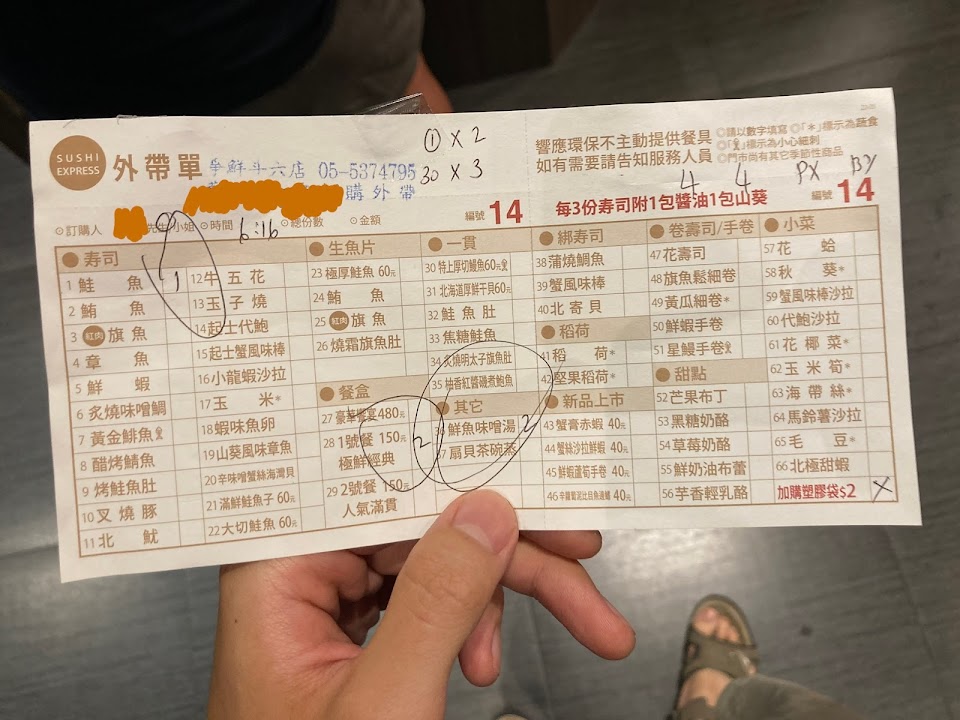 SUSHI EXPRESS
外帶單
爭鮮斗六店 05-5374795
購外帶
① X 2
30 X 3
響應環保不主動提供餐具
如有需要請告知服務人員
◎請以數字填寫 ◎「*」標示為蔬食
標示為小心細刺
◎門市尚有其它季節性商品
4 4 PX BY
每3份壽司附1包醬油1包山葵
編號 14
編號 14
◎訂購人 先生/小姐 ◎時間 6:16 ◎總份數 ◎金額
壽司
1 鮭魚
2 鮪魚
3 紅肉 旗魚
4 章魚
5 鮮蝦
6 炙燒味噌鯛
7 黃金鯡魚
8 醋烤鯖魚
9 烤鮭魚肚
10 叉燒豚
11 北魷
1
12 牛五花
13 玉子燒
14 起士代鮑
15 起士蟹風味棒
16 小龍蝦沙拉
17 玉米*
18 蝦味魚卵
19 山葵風味章魚
20 辛味噌蟹絲海灣貝
21 滿鮮鮭魚子 60元
22 大切鮭魚 60元
生魚片
23 極厚鮭魚 60元
24 鮪魚
25 紅肉 旗魚
26 燒霜旗魚肚
餐盒
27 豪華饗宴480元
28 1號餐 150元
極鮮經典
29 2號餐 150元
人氣滿貫
2
一貫
30 特上厚切鰻魚60元
31 北海道厚鮮干貝60元
32 鮭魚肚
33 焦糖鮭魚
34 炙燒明太子旗魚肚
35 柚香紅醬磯煮鮑魚
其它
36 鮮魚味噌湯
37 扇貝茶碗蒸
2
綁壽司
38 蒲燒鯛魚
39 蟹風味棒
40 北寄貝
稻荷
41 稻荷*
42 堅果稻荷*
新品上市
43 蟹膏赤蝦 40元
44 蟹絲沙拉鮮蝦 40元
45 鮮蝦蘆筍手卷 40元
46 40元
卷壽司/手卷
47 花壽司
48 旗魚鬆細卷
49 黃瓜細卷*
50 鮮蝦手卷
51 星鰻手卷
甜點
52 芒果布丁
53 黑糖奶酪
54 草莓奶酪
55 鮮奶油布蕾
56 芋香輕乳酪
小菜
57 花蛤
58 秋葵*
59 蟹風味棒沙拉
60 代鮑沙拉
61 花椰菜*
62 玉米筍*
63 海帶絲*
64 馬鈴薯沙拉
65 毛豆*
66 北極甜蝦
加購塑膠袋$2 X